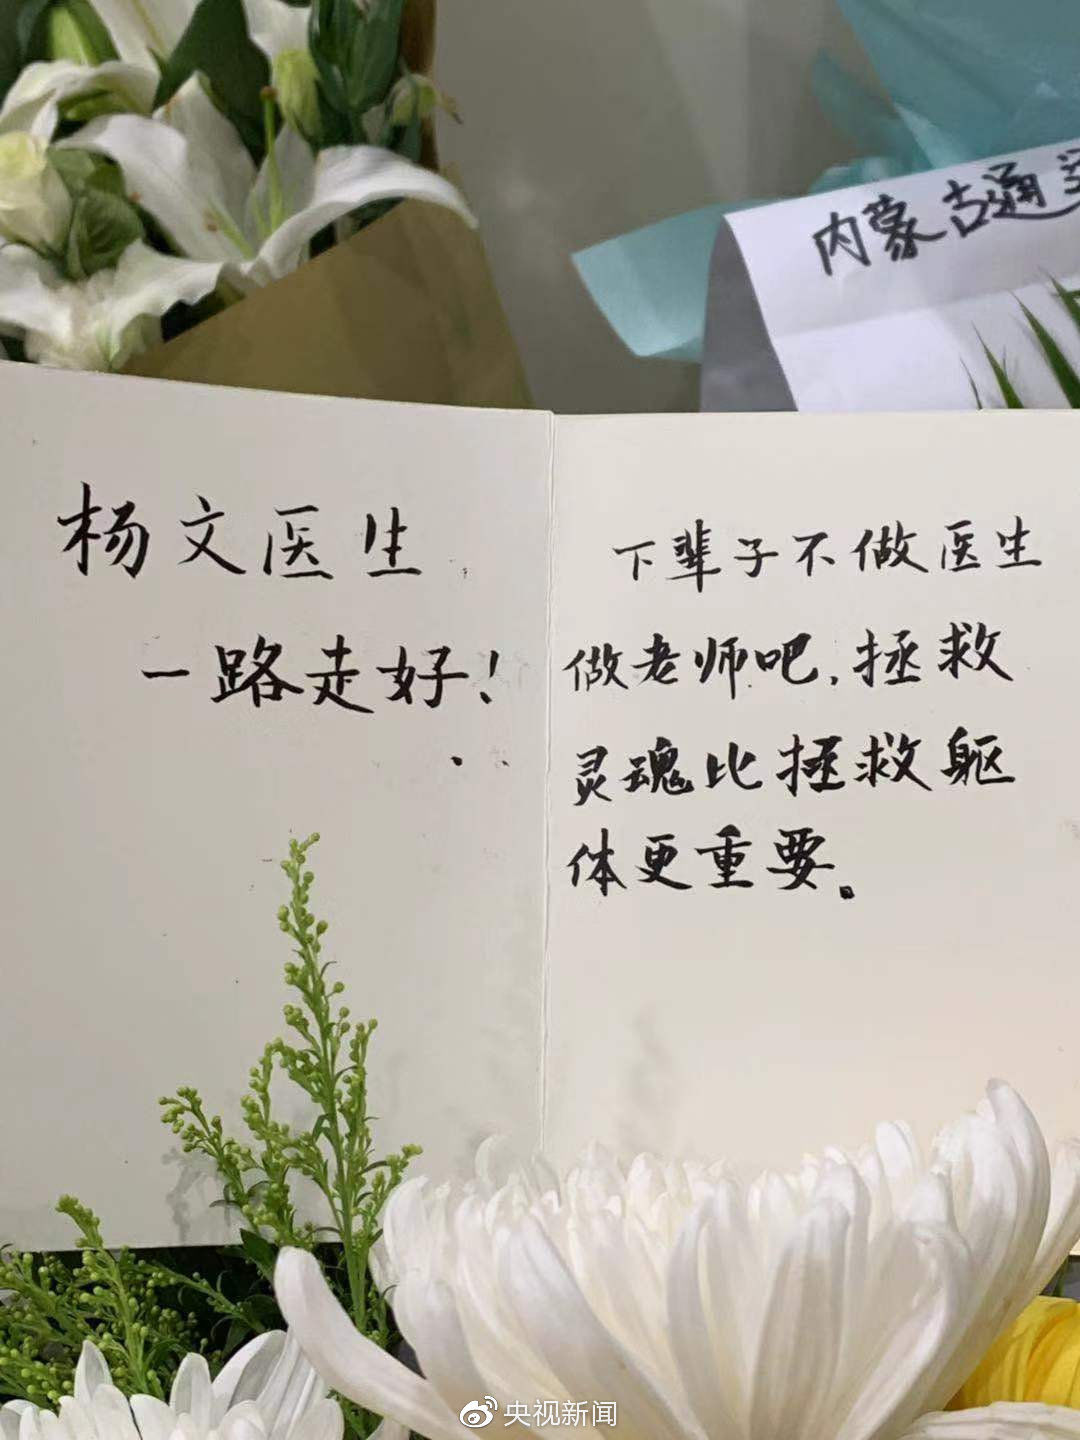 内蒙古通
杨文医生
一路走好！
下辈子不做医生
做老师吧，拯救
灵魂比拯救躯
体更重要。
央视新闻